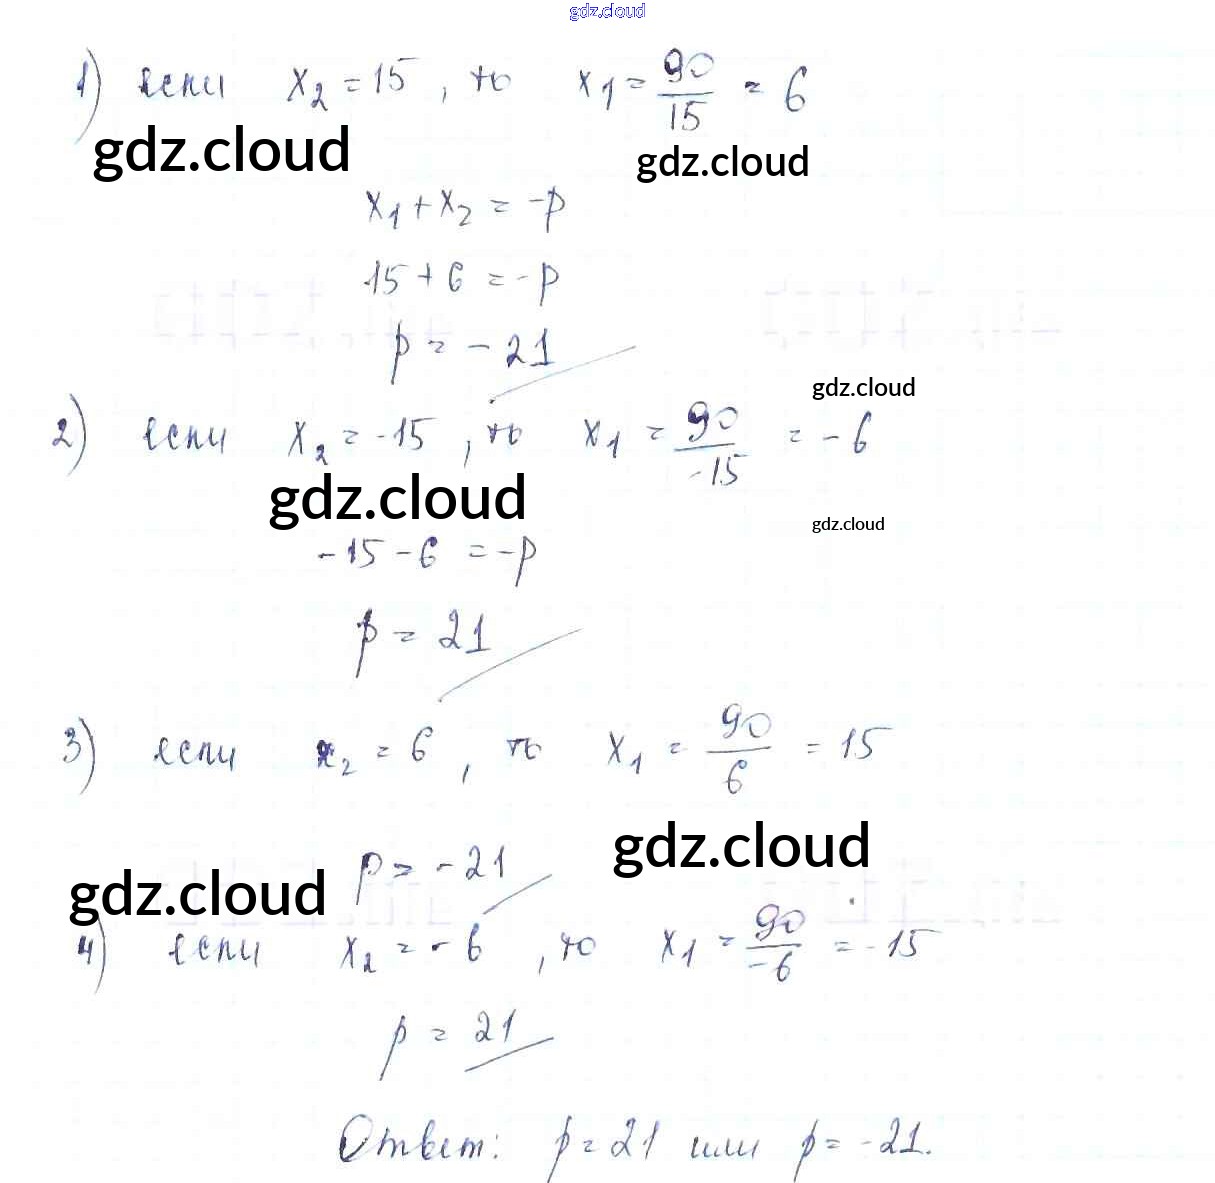 gdz.cloud
1) если x₂ = 15, то x₁ = 90/15 = 6
gdz.cloud gdz.cloud
x₁ + x₂ = -p
15 + 6 = -p
p = -21
gdz.cloud
2) если x₂ = -15, то x₁ = 90/-15 = -6
gdz.cloud
gdz.cloud
-15 - 6 = -p
p = 21
3) если x₂ = 6, то x₁ = 90/6 = 15
gdz.cloud
p = -21
gdz.cloud
4) если x₂ = -6, то x₁ = 90/-6 = -15
p = 21
Ответ: p = 21 или p = -21.